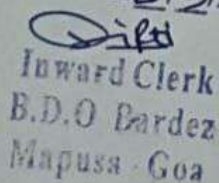 Inward Clerk
B.D.O Bardez
Mapusa - Goa